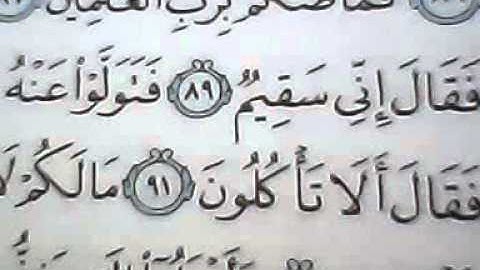 فَمَا ظَنُّكُم بِرَبِّ ٱلْعَٰلَمِينَ
فَقَالَ إِنِّى سَقِيمٌ ٨٩ فَتَوَلَّوْا۟ عَنْهُ
فَقَالَ أَلَا تَأْكُلُونَ ٩١ مَا لَكُمْ لَا